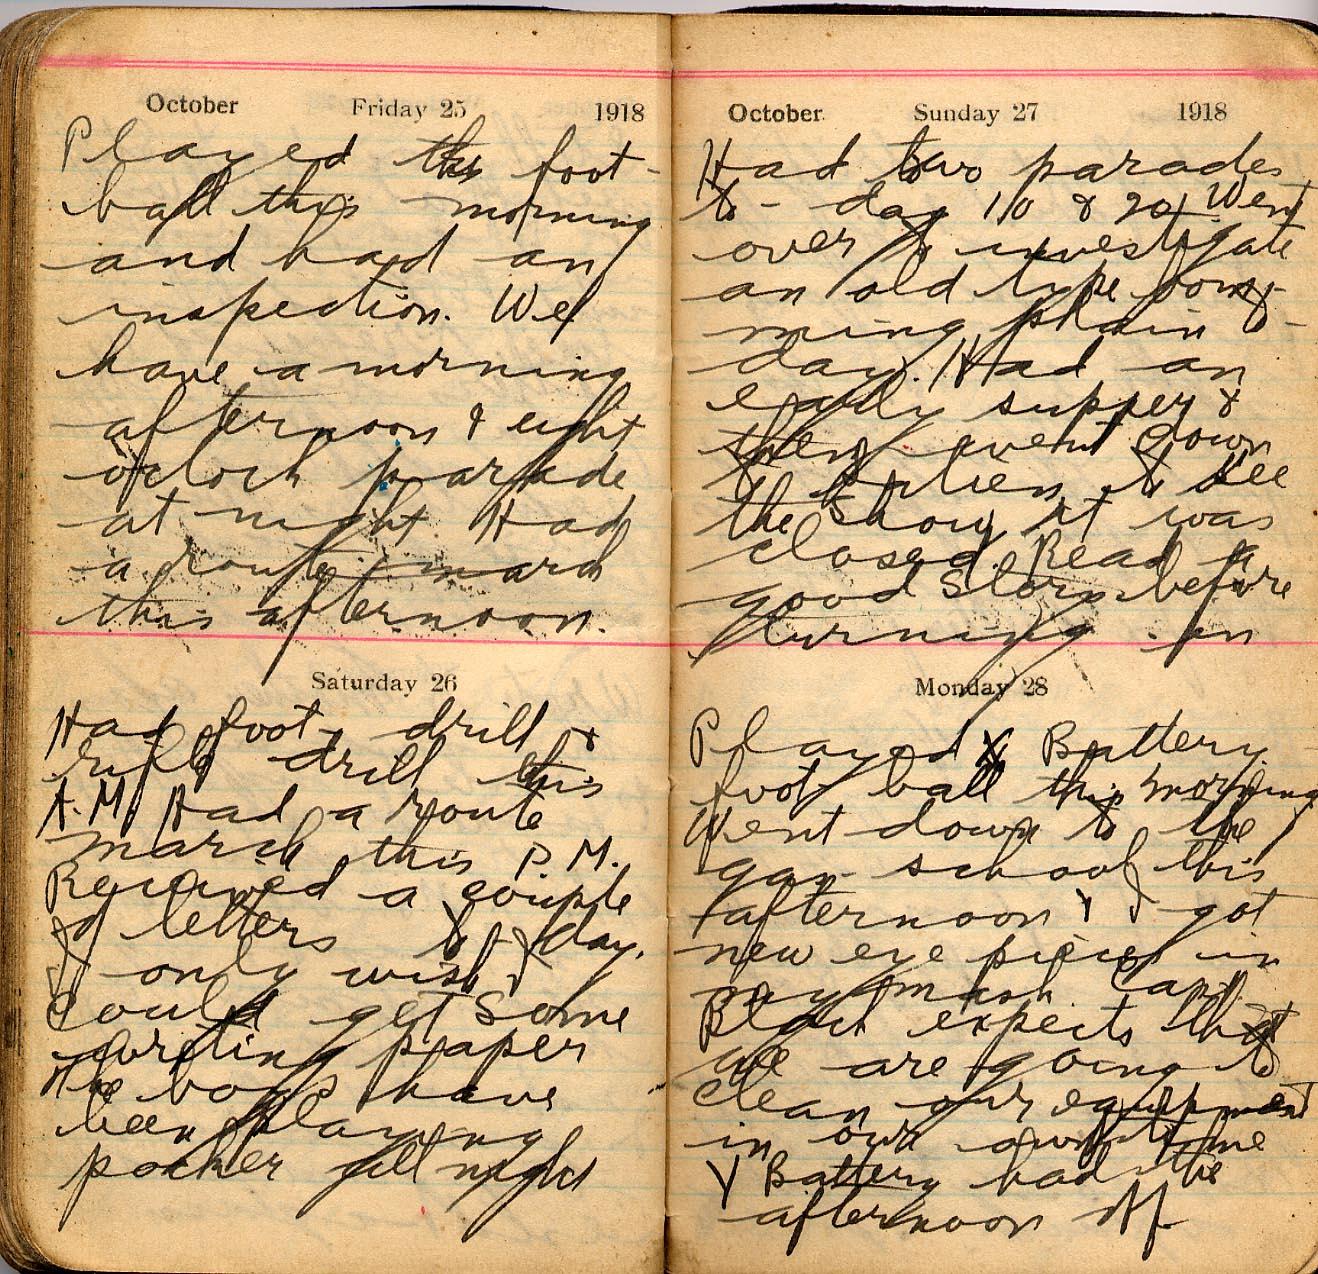 October Friday 25 1918
Played the foot-
ball this morning
and had an
inspection. We
have a morning
afternoon & eight
o'clock parade
at night Had
a route march
this afternoon.
Saturday 26
Had foot drill &
rifle drill this
A.M. Had a route
march this P.M.
Received a couple
of letters to-day.
I only wish I
could get some
writing paper
The boys have
been playing
pocker all night
October Sunday 27 1918
Had two parades
to-day 10 & 2 Went
over to investigate
an old type
day. Had an
early supper &
then went down
to to see
the Show it was
closed. Read a
good story before
turning in
Monday 28
Played X Battery
foot ball this morning
Went down to the
gas school this
afternoon & I got
new eye pieces in
my mask. Capt
expects that
we are going to
clean our equipment
in our own time
Y Battery had the
afternoon off